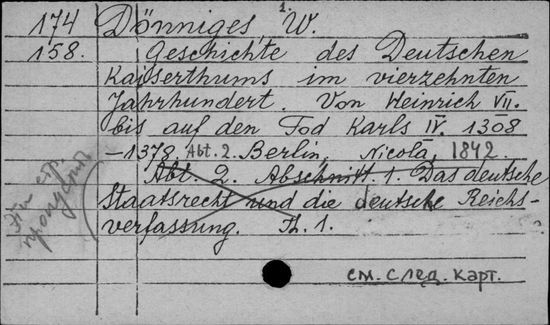 1.
174 Dönniges, W.
158. Geschichte des Deutschen
Kaiserthums im vierzehnten
Jahrhundert. Von Heinrich VII.
bis auf den Tod Karls IV. 1308
-1378. Abt. 2. Berlin, Nicola, 1842.
Abt. 2. Abschnitt 1. Das deutsche
Staatsrecht und die deutsche Reichs-
verfassung. Th. 1.
Эти стр.
пропустить
см. след. карт.